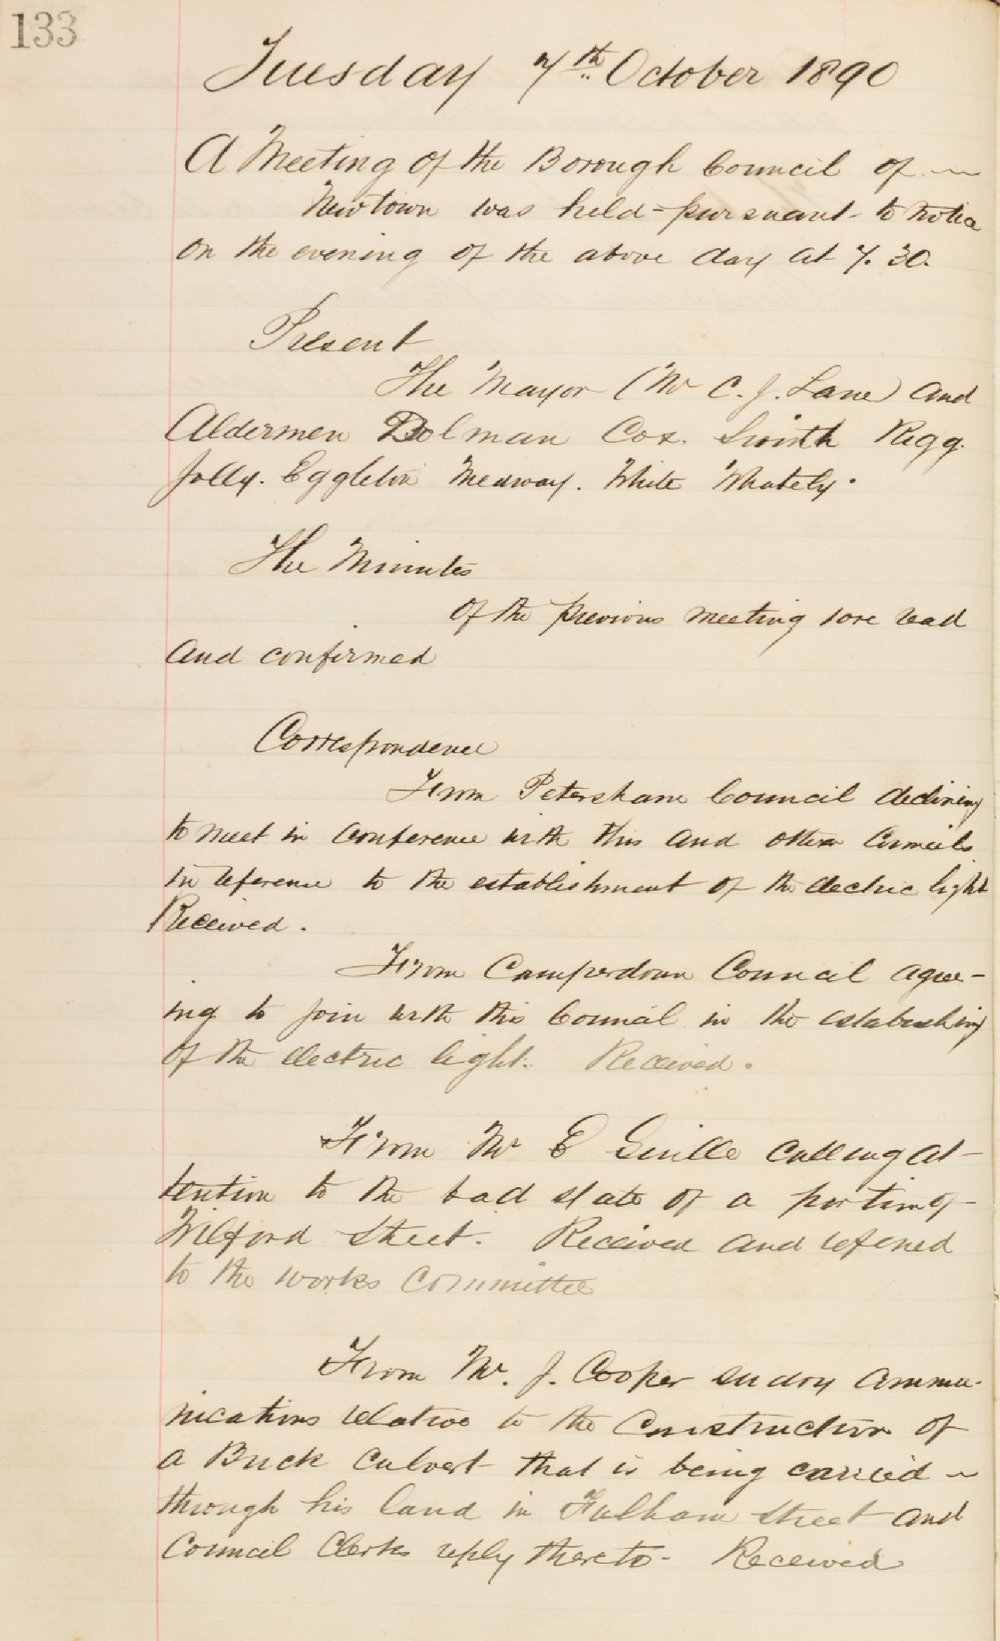 133
Tuesday 7th October 1890
A Meeting of the Borough Council of
Newtown was held pursuant to notice
on the evening of the above day at 7.30.
Present
The Mayor (Mr C. J. Lane) and
Aldermen Dolman Cox. Smith Rigg.
Jolly. Eggleton Medway. White Whately.
The Minutes
of the previous meeting were read
and confirmed
Correspondence
From Petersham Council declining
to meet in conference with this and other Councils
in reference to the establishment of the electric light
Received.
From Camperdown Council agree-
ing to join with this Council in the establishing
of the electric light. Received.
From Mr E calling at-
tention to the bad state of a portion of
Wilford Street. Received and referred
to the works Committee
From Mr. J. Cooper sundry commu-
nications relative to the Construction of
a Brick Culvert that is being carried
through his land in Fulham Street and
Council Clerks reply thereto - Received